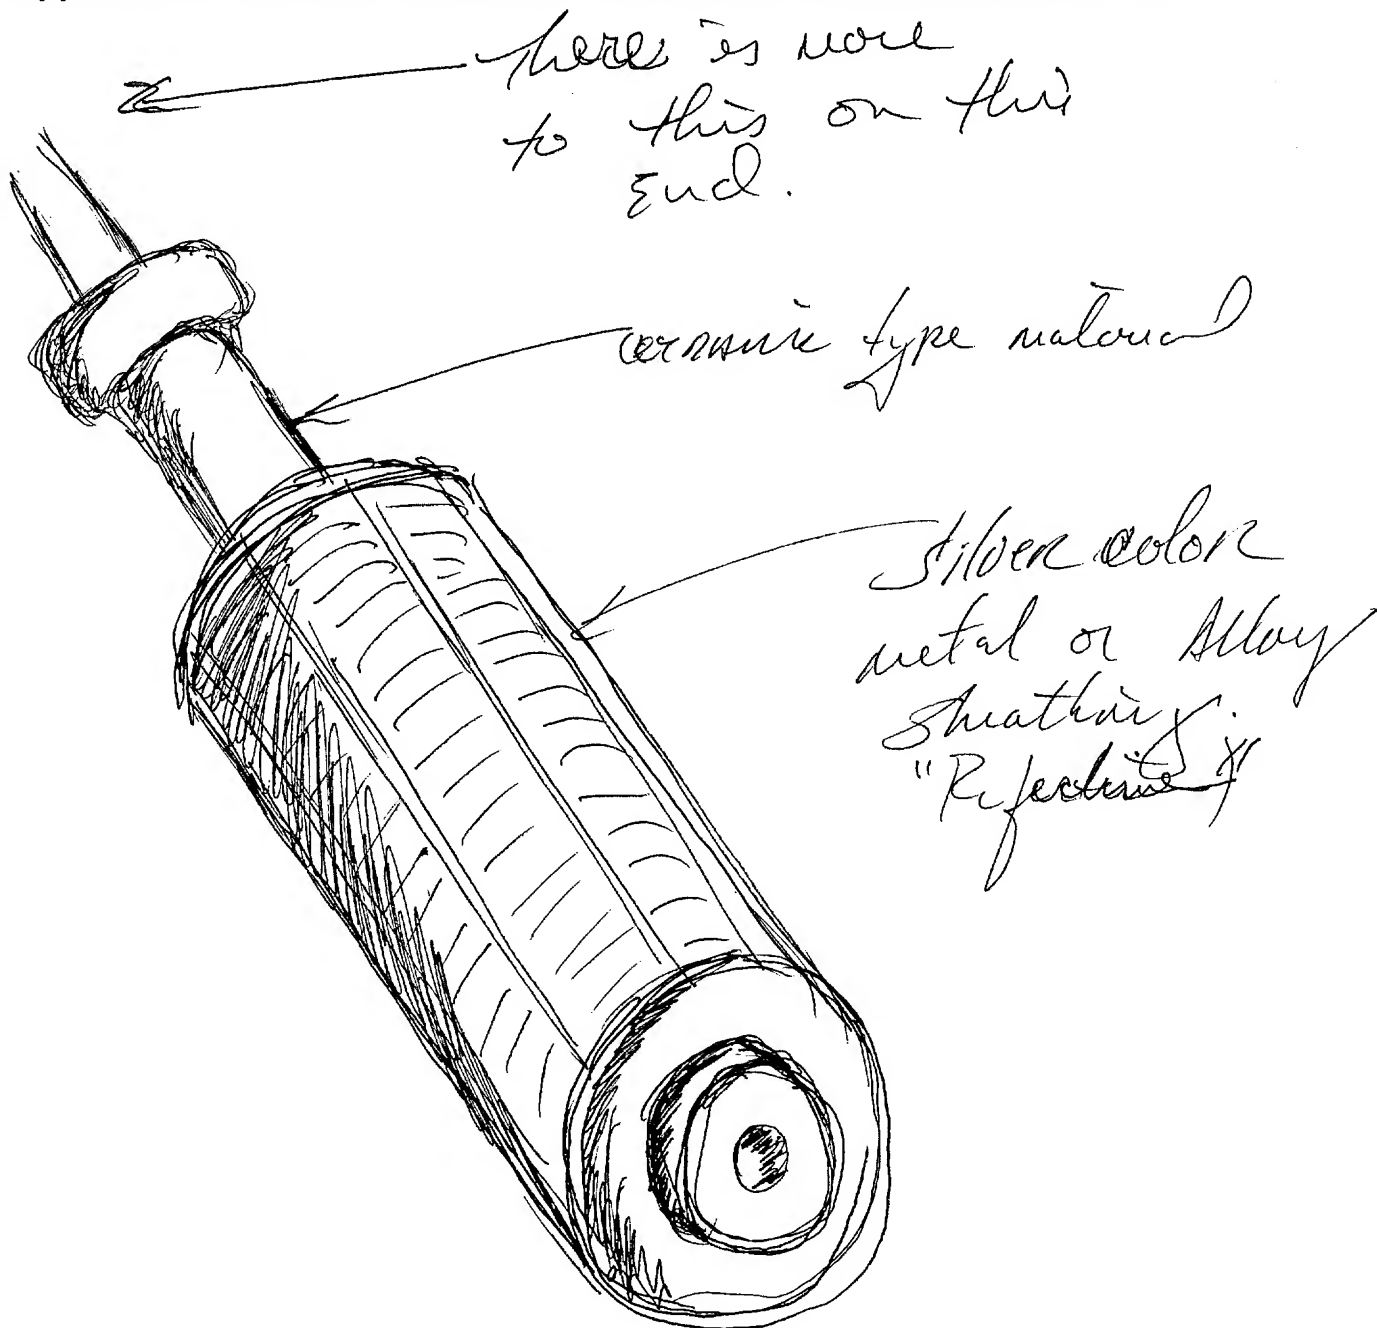 there is more
to this on this
End.
ceramic type material
silver color
metal or Alloy
sheathing.
"Refective"